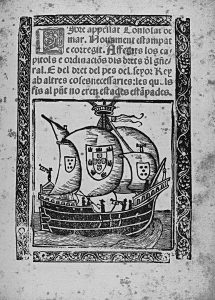 Libre appellat Consolat de
mar. Nouament estampat
e corregit. Affegits los ca
pitols e ordinaciõs dis drets ðl gñe
ral. E del dret del pes del señor Rey
ab altres coses necessaries: les quals
fis al pñt no eren estades estãpades.